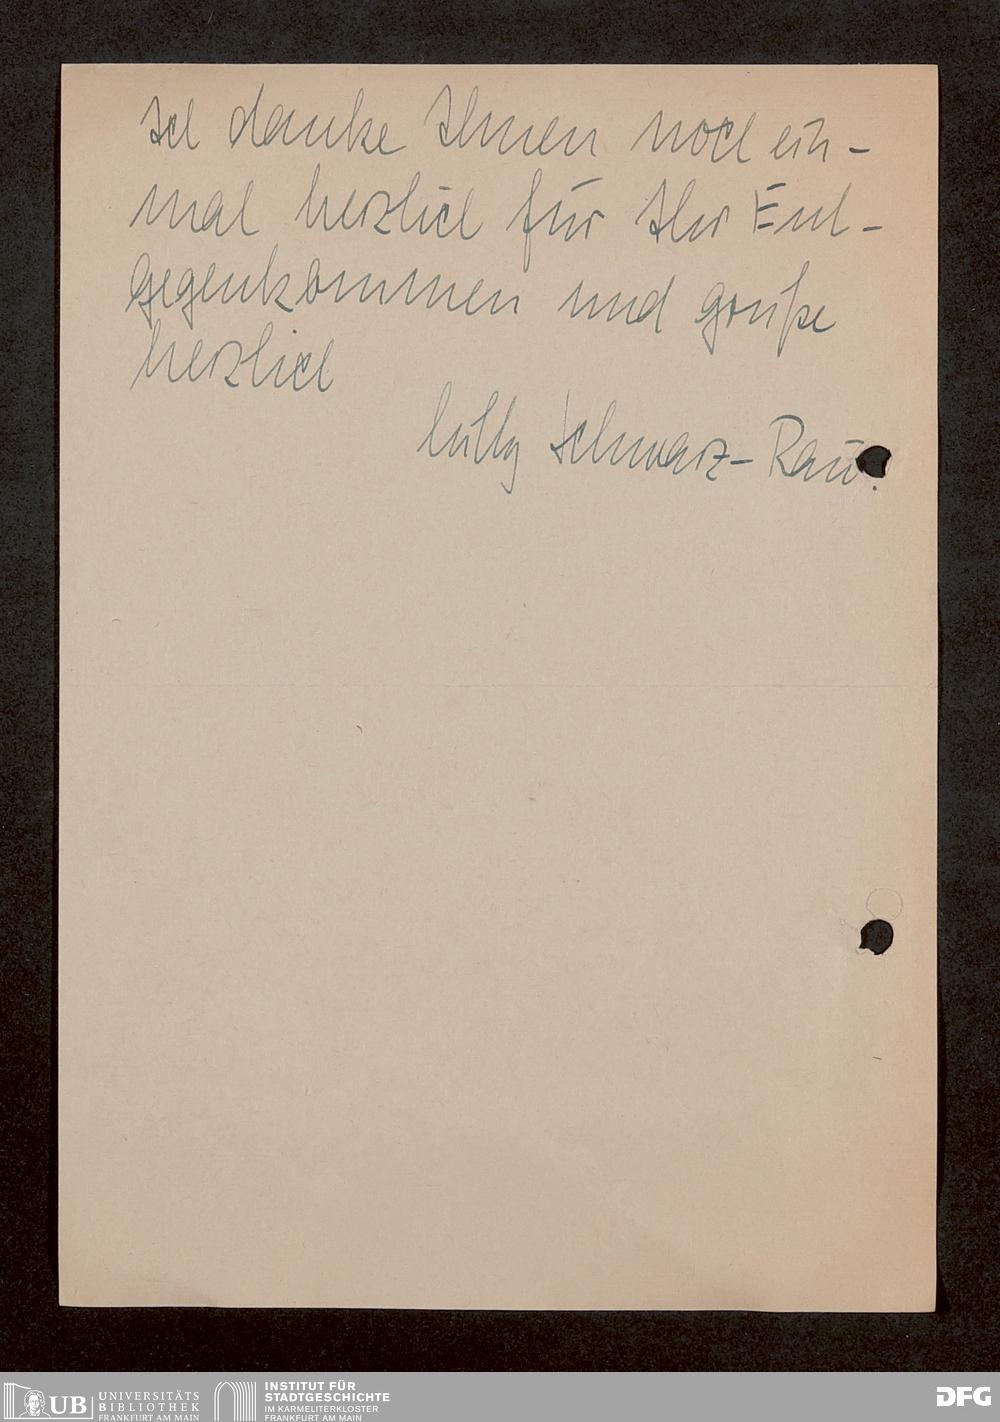 Ich danke Ihnen noch ein-
mal herzlich für Ihr Ent-
gegenkommen und grüße
herzlich
Lilly Schwarz-Rau.
UB UNIVERSITÄTS
BIBLIOTHEK
FRANKFURT AM MAIN
INSTITUT FÜR
STADTGESCHICHTE
IM KARMELITERKLOSTER
FRANKFURT AM MAIN
DFG